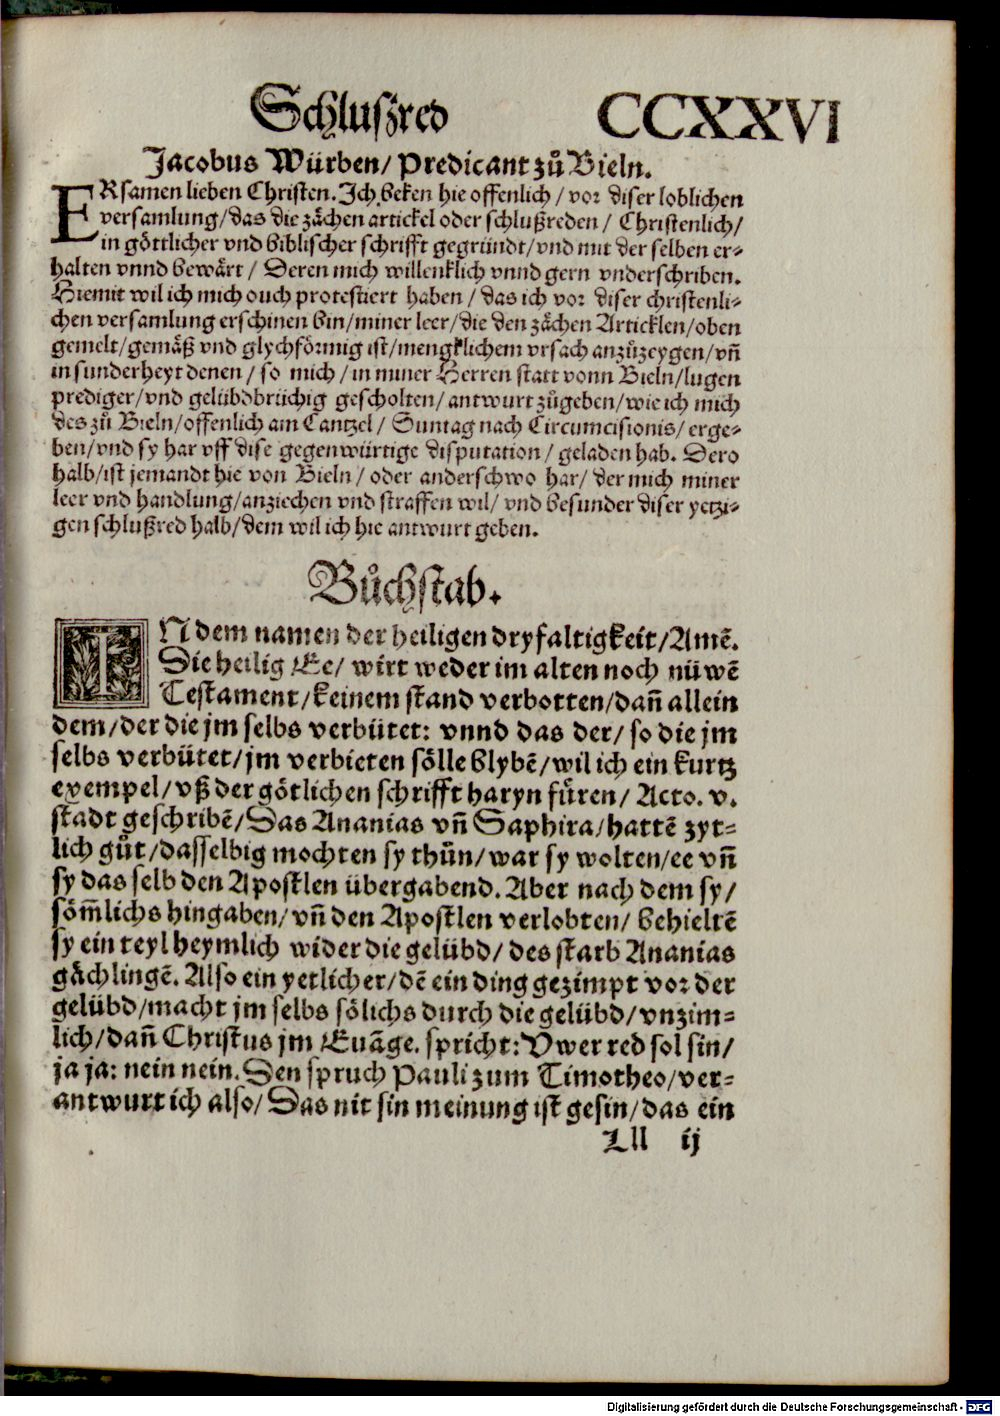 Schluszred CCXXVI
Jacobus Würben/ Predicant zů Bieln.
ERsamen lieben Christen. Ich beken hie offenlich / vor diser loblichen
versamlung/das die zächen artickel oder schlußreden / Christenlich/
in göttlicher vnd biblischer schrifft gegründt/vnd mit der selben er-
halten vnnd bewärt / Deren mich willenklich vnnd gern vnderschriben.
Hiemit wil ich mich ouch protestiert haben / das ich vor diser christenli-
chen versamlung erschinen bin/miner leer/die den zächen Articklen/oben
gemelt/gemäß vnd glychförmig ist/mengklichem vrsach anzůzeygen/vñ
in sunderheyt denen / so mich / in miner Herren statt vonn Bieln/lugen
prediger/vnd gelübdbrüchig gescholten/antwurt zůgeben/wie ich mich
des zů Bieln/offenlich am Cantzel / Suntag nach Circumcisionis/ erge-
ben/vnd sy har vff dise gegenwürtige disputation / geladen hab. Dero
halb/ist jemandt hie von Bieln / oder anderschwo har/ der mich miner
leer vnd handlung/anziechen vnd straffen wil/ vnd besunder diser yetzi-
gen schlußred halb/dem wil ich hie antwurt geben.
Bůchstab.
IN dem namen der heiligen dryfaltigkeit/Amẽ.
Die heilig Ee/ wirt weder im alten noch nüwẽ
Testament/keinem stand verbotten/dañ allein
dem/der die jm selbs verbütet: vnnd das der/ so die jm
selbs verbütet/jm verbieten sölle blybẽ/wil ich ein kurtz
exempel/vß der götlichen schrifft haryn füren/ Acto. v.
stadt geschribẽ/Das Ananias vñ Saphira/hattẽ zyt-
lich gůt/dasselbig mochten sy thůn/war sy wolten/ee vñ
sy das selb den Apostlen übergabend. Aber nach dem sy/
söm̃lichs hingaben/vñ den Apostlen verlobten/ behieltẽ
sy ein teyl heymlich wider die gelübd/ des starb Ananias
gächlingẽ. Also ein yetlicher/dẽ ein ding gezimpt vor der
gelübd/macht jm selbs sölichs durch die gelübd/vnzim-
lich/dañ Christus jm Euãge. spricht: Vwer red sol sin/
ja ja: nein nein. Den spruch Pauli zum Timotheo/ver-
antwurt ich also/ Das nit sin meinung ist gesin/das ein
Lll ij
Digitalisierung gefördert durch die Deutsche Forschungsgemeinschaft - DFG